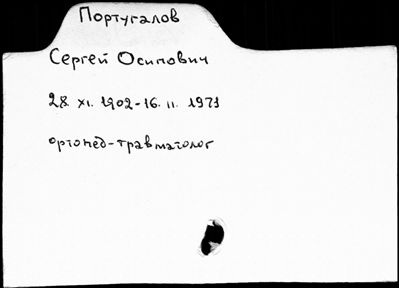 Португалов
Сергей Осипович
28. XI. 1902-16. II. 1971
ортопед-травматолог